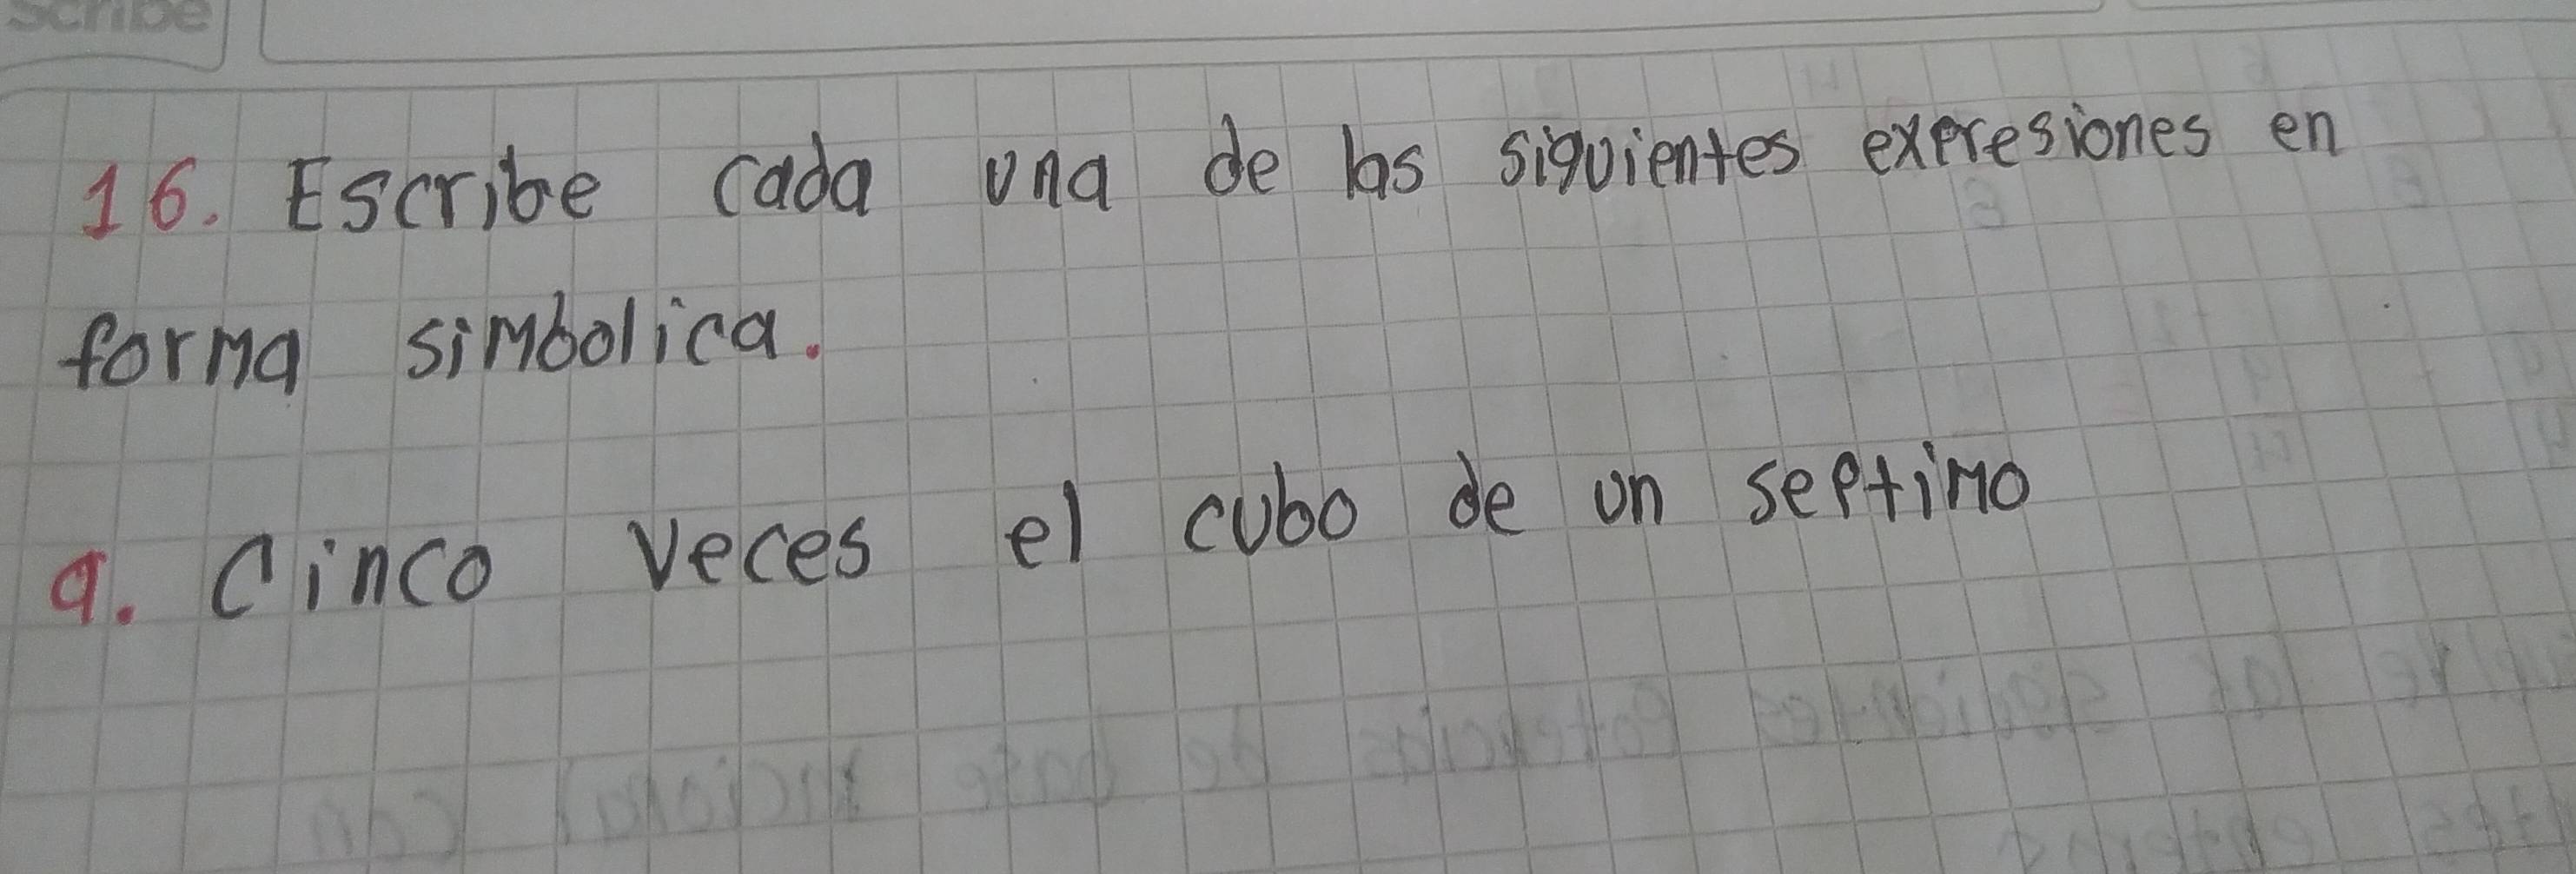 scribe
16. Escribe cada una de las siguientes expresiones en
forma simbolica.
a. Cinco veces el cubo de un septimo